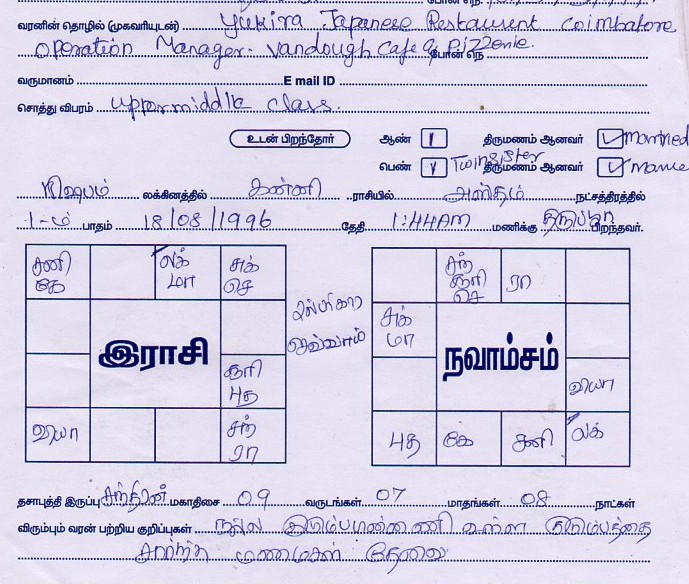 வரனின் தொழில் (முகவரியுடன்) Yukira Japanese Restaurent Coimbatore
Operation Manager. Vandough Cafe & Pizzenie. போன் நெ.
வருமானம் E mail ID
சொத்து விபரம் uppermiddle class.
உடன் பிறந்தோர் ஆண் 1 திருமணம் ஆனவர் ✓ married
பெண் 1 Twinsister திருமணம் ஆனவர் ✓
ரிஷபம் லக்கினத்தில் கன்னி ராசியில் அஸ்தம் நட்சத்திரத்தில்
1-ம் பாதம் 18/08/1996 தேதி 1:44AM மணிக்கு பிறந்தவர்.
சனி கே லக் மா சுக் செ
இராசி
சூரி புத
வியா சந் ரா
சந் சூரி செ ரா
சுக் மா
நவாம்சம்
வியா
புத கே சனி லக்
தசாபுத்தி இருப்பு சந்திரன் மகாதிசை 09 வருடங்கள் 07 மாதங்கள் 08 நாட்கள்
விரும்பும் வரன் பற்றிய குறிப்புகள் நல்ல குடும்ப பின்னணி உள்ள குடும்பத்தை
சார்ந்த மணமகள் தேவை